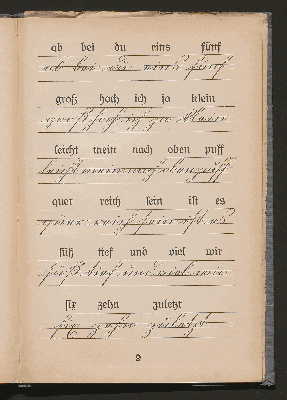 ab bei du eins fünf
ab bei du eins fünf
groß hoch ich ja klein
groß hoch ich ja klein
leicht mein nach oben puff
leicht mein nach oben puff
quer reich sein ist es
quer reich sein ist es
süß tief und viel wir
süß tief und viel wir
six zehn zuletzt
six zehn zuletzt
9